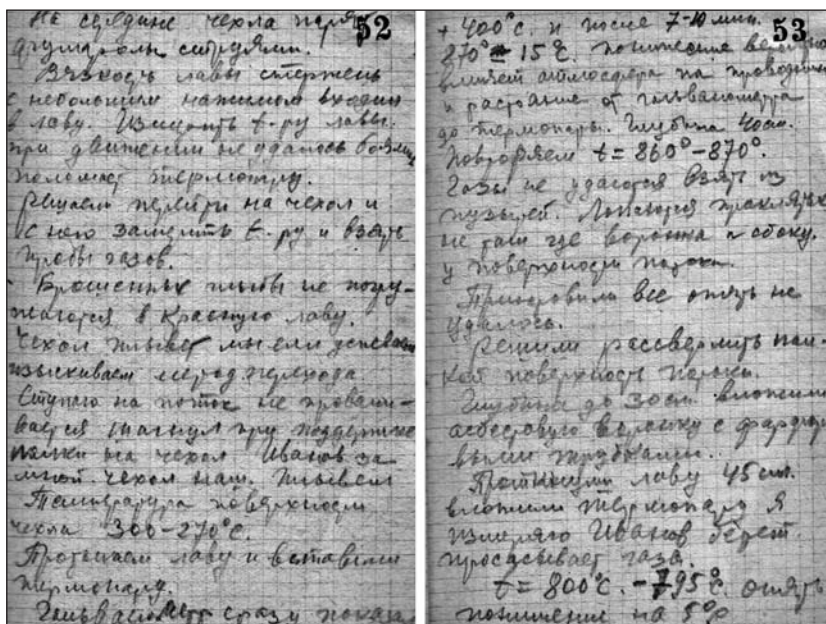 На средине чехла парят 52
фумаролы струями.
Вязкость лавы стержень
с небольшим нажимом входит
в лаву. Измерить t-ру лавы.
при движении не удалось боямся
поломает термопару.
Решаем перейти на чехол и
с него замерить t-ру и взять
пробы газов.
Брошенные глыбы не погру-
жаются в красную лаву.
Чехол плывет мы еле успеваем
изыскиваем метод перехода
Ступаю на поток не провали-
вается шагнул при поддержке
палки на чехол Иванов за
мной. чехол наш. Плывем
Температура поверхности
чехла 300-270°C.
Протыкаем лаву и вставили
термопару.
Гальванометр сразу показа
+ 400°C. и после 7-10 мин. 53
870° 15°C. понижение
влияет атмосфера на
и растояние от гальванометра
до термопары. Глубина 40см.
Повторяем t = 860°-870°.
Газы не удаются взять из
пузырей. Лопаются проклятые
не там где воронка а сбоку.
у поверхности потока.
все опять не
удалось.
Решили рассверлить пал-
кой поверхность потока.
Глубина до 30см вложили
асбестовую воронку с фарфоро
выми трубками.
Проткнули лаву 45см.
вложили термопару я
измеряю Иванов берет.
просасывает газа.
t = 800°C. - 795°C. опять
понижение на 5°C